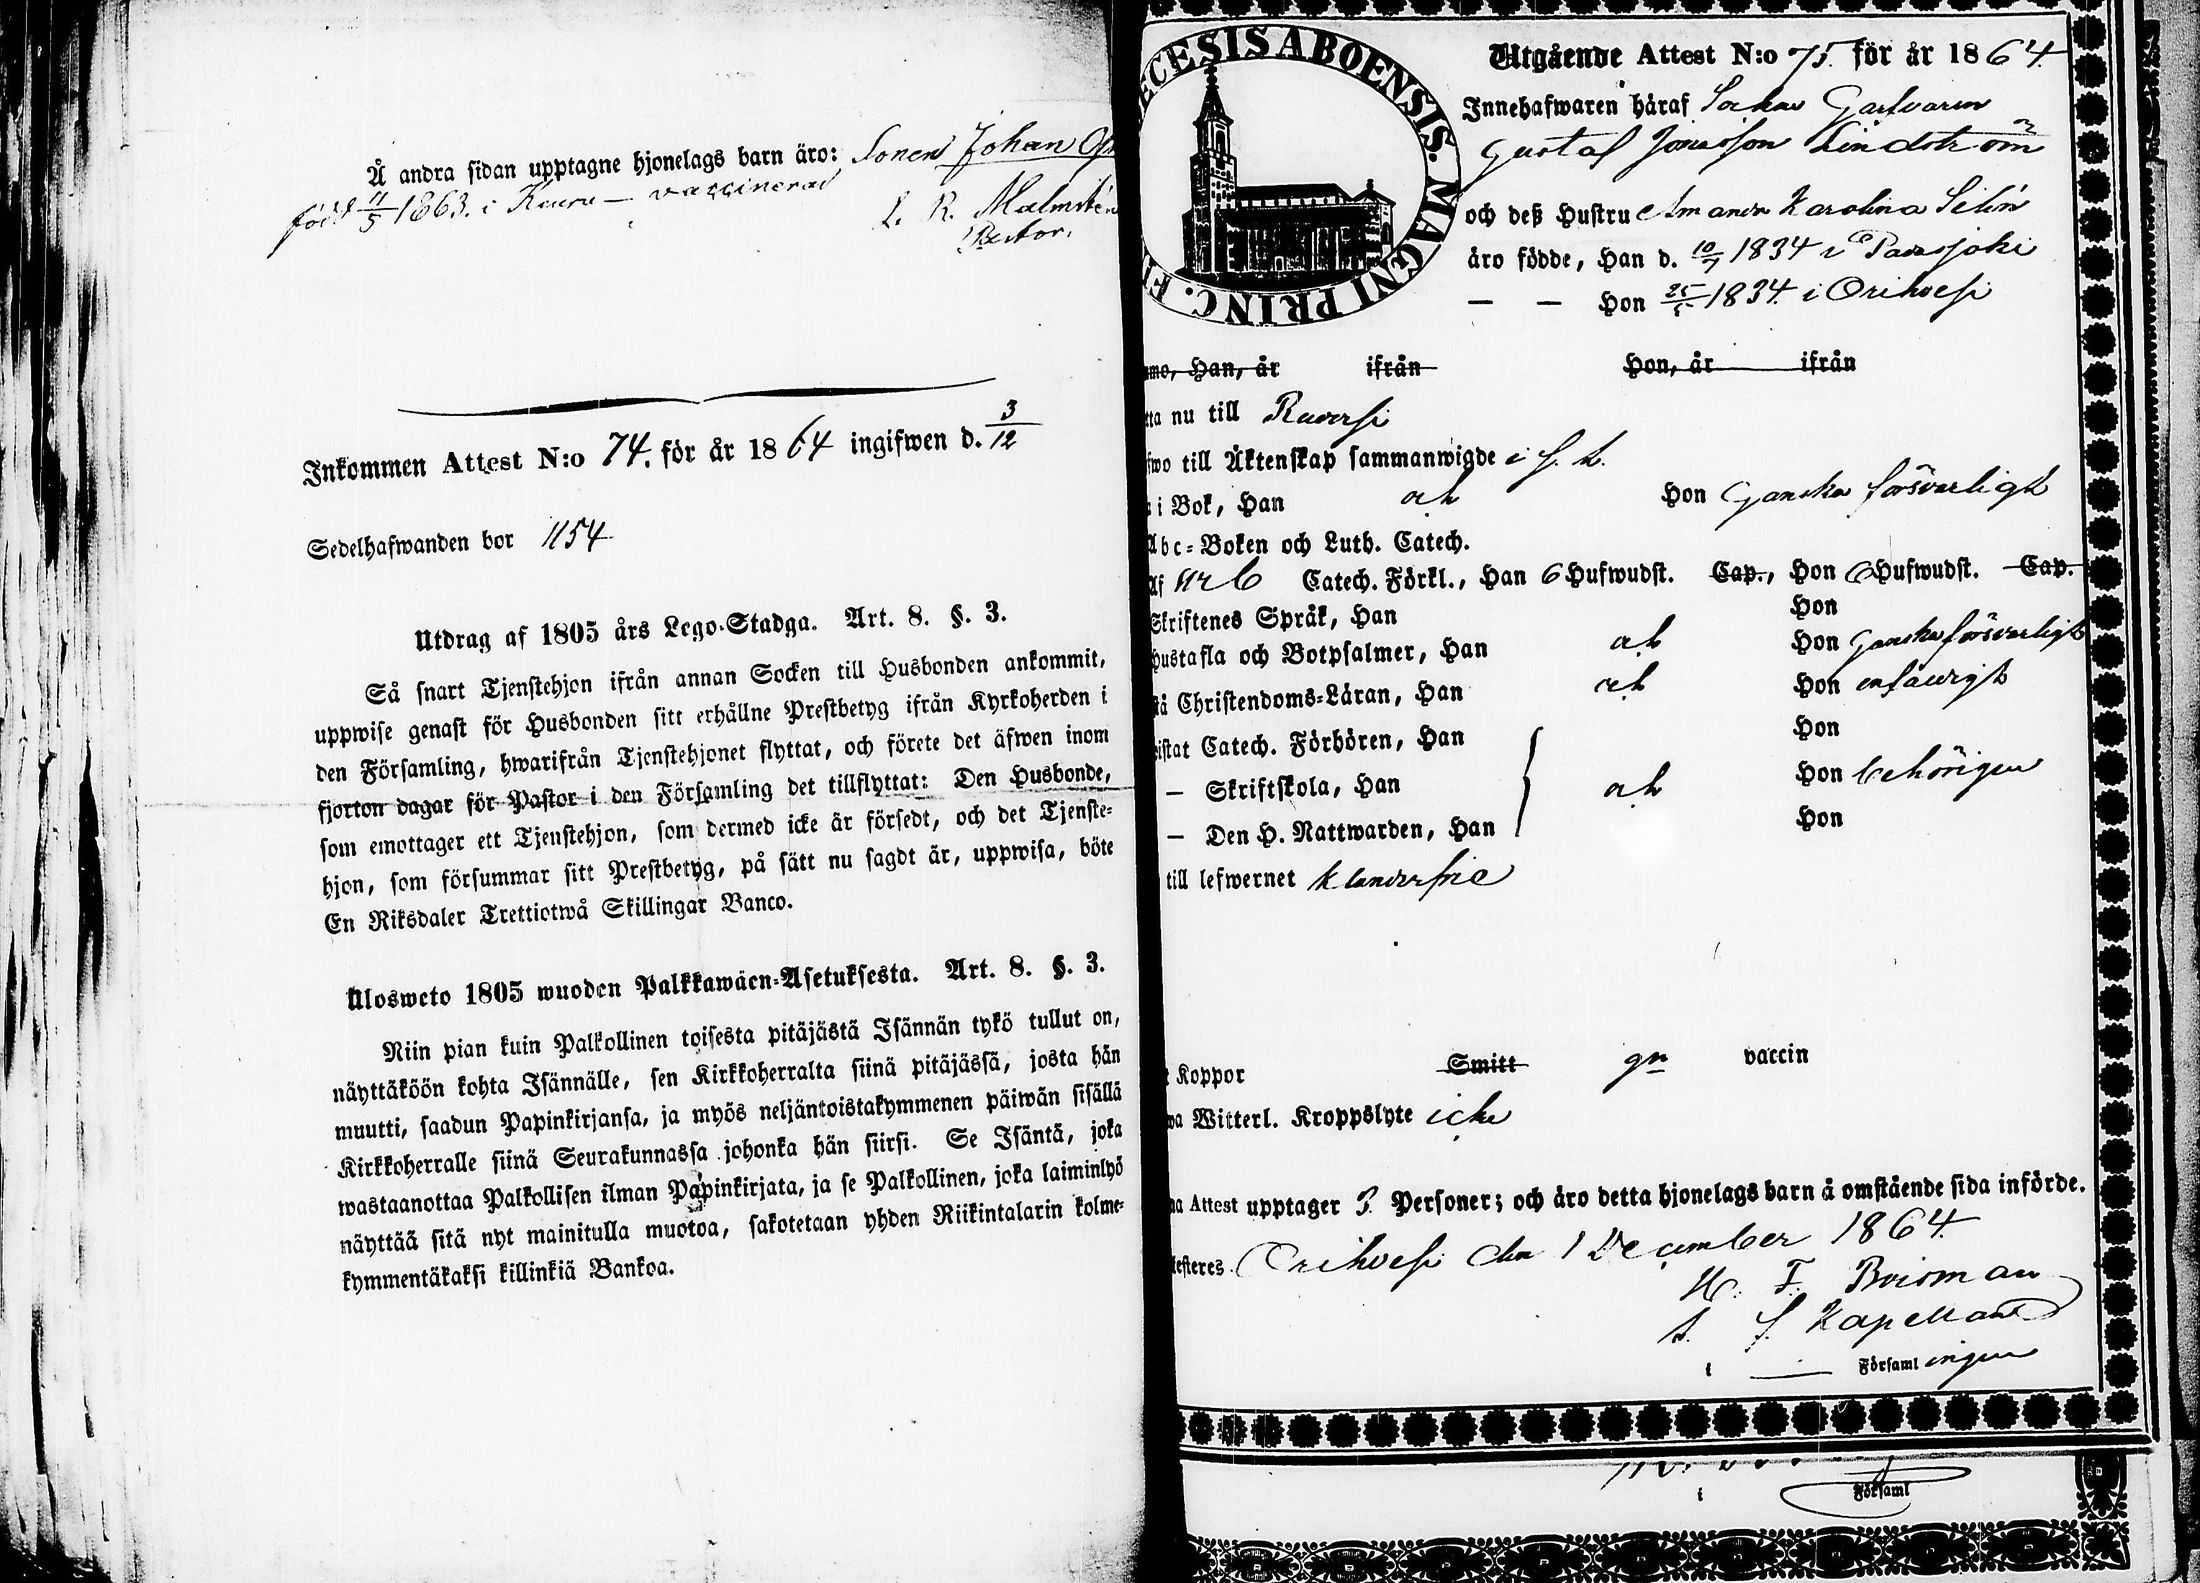 Å andra sidan upptagne hjonelags barn äro: Sonen Johan
född 11/5 1863. i Keuru — vaccinerad
L. R. Malmstén
Pastor.
Inkommen Attest N:o 74. för år 1864 ingifwen d. 3/12
Sedelhafwanden bor 1154
Utdrag af 1805 års Lego-Stadga. Art. 8. §. 3.
Så snart Tjenstehjon ifrån annan Socken till Husbonden ankommit,
uppwise genast för Husbonden sitt erhållne Prestbetyg ifrån Kyrkoherden i
den Församling, hwarifrån Tjenstehjonet flyttat, och förete det äfwen inom
fjorton dagar för Pastor i den Församling det tillflyttat: Den Husbonde,
som emottager ett Tjenstehjon, som dermed icke är försedt, och det Tjenste-
hjon, som försummar sitt Prestbetyg, på sätt nu sagdt är, uppwisa, böte
En Riksdaler Trettiotwå Skillingar Banco.
Ulosweto 1805 wuoden Palkkawäen-Asetuksesta. Art. 8. §. 3.
Niin pian kuin Palkollinen toisesta pitäjästä Isännän tykö tullut on,
näyttäköön kohta Isännälle, sen Kirkkoherralta siinä pitäjässä, josta hän
muutti, saadun Papinkirjansa, ja myös neljäntoistakymmenen päiwän sisällä
Kirkkoherralle siinä Seurakunnassa johonka hän siirsi. Se Isäntä, joka
wastaanottaa Palkollisen ilman Papinkirjata, ja se Palkollinen, joka laiminlyö
näyttää sitä nyt mainitulla muotoa, sakotetaan yhden Riikintalarin kolme-
kymmentäkaksi killinkiä Bankoa.
ECESIS ABOENSIS. MAGNI PRINC. FI
Utgående Attest N:o 75. för år 1864.
Innehafwaren häraf Socken Garfvaren
Gustaf Jonasson Lindström
och deß Hustru Amanda Karolina Selin
äro födde, Han d. 10/7 1834 i
— — Hon 25/5 1834. i Orihvesi
mo, Han, år ifrån Hon, år ifrån
tta nu till Ruovesi
fwo till Äktenskap sammanwigde i
i Bok, Han Hon Ganska försvarligt
Abc-Boken och Luth. Catech.
Af Catech. Förkl., Han 6 Hufwudst. Cap., Hon 6 Hufwudst. Cap.
Skriftenes Språk, Han Hon
Hustafla och Botpsalmer, Han Hon Ganska försvarligt
tå Christendoms-Läran, Han Hon enfaldigt
istat Catech. Förhören, Han Hon
— Skriftskola, Han Hon behörigen
— Den H. Nattwarden, Han Hon
till lefwernet klanderfrie
Koppor Smitt gn vaccin
wa Witterl. Kroppslyte icke
na Attest upptager 3 Personer; och äro detta hjonelags barn å omstående sida införde.
esteres Orihvesi den 1 December 1864.
H. F. Boisman
Kapellan
i — Församlingen
i Församl